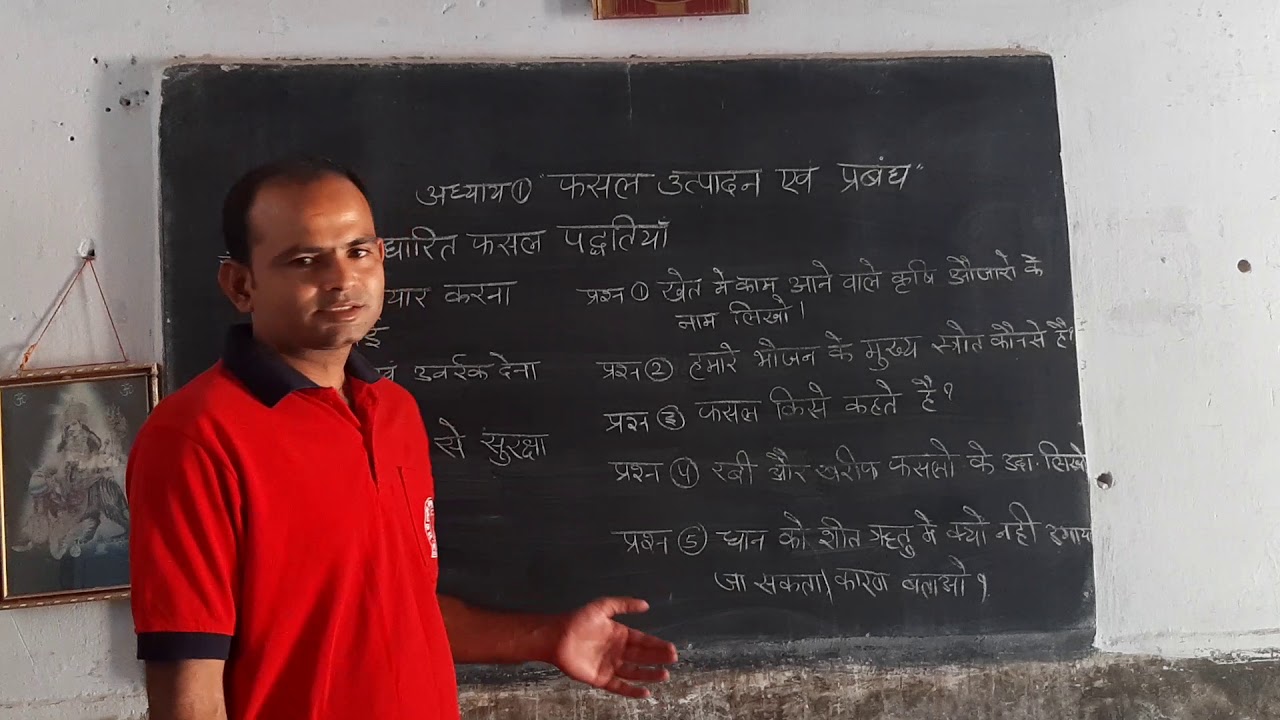 अध्याय ① "फसल उत्पादन एवं प्रबंध"
धारित फसल पद्धतियाँ
यार करना
ई
वं उर्वरक देना
से सुरक्षा
प्रश्न ① खेत मे काम आने वाले कृषि औजारो के
नाम लिखो।
प्रश्न ② हमारे भोजन के मुख्य स्त्रोत कौनसे है?
प्रश्न ③ फसल किसे कहते है?
प्रश्न ④ रबी और खरीफ फसलो के उदा. लिखो
प्रश्न ⑤ धान को शीत ऋतु मे क्यो नही उगाया
जा सकता। कारण बताओ?